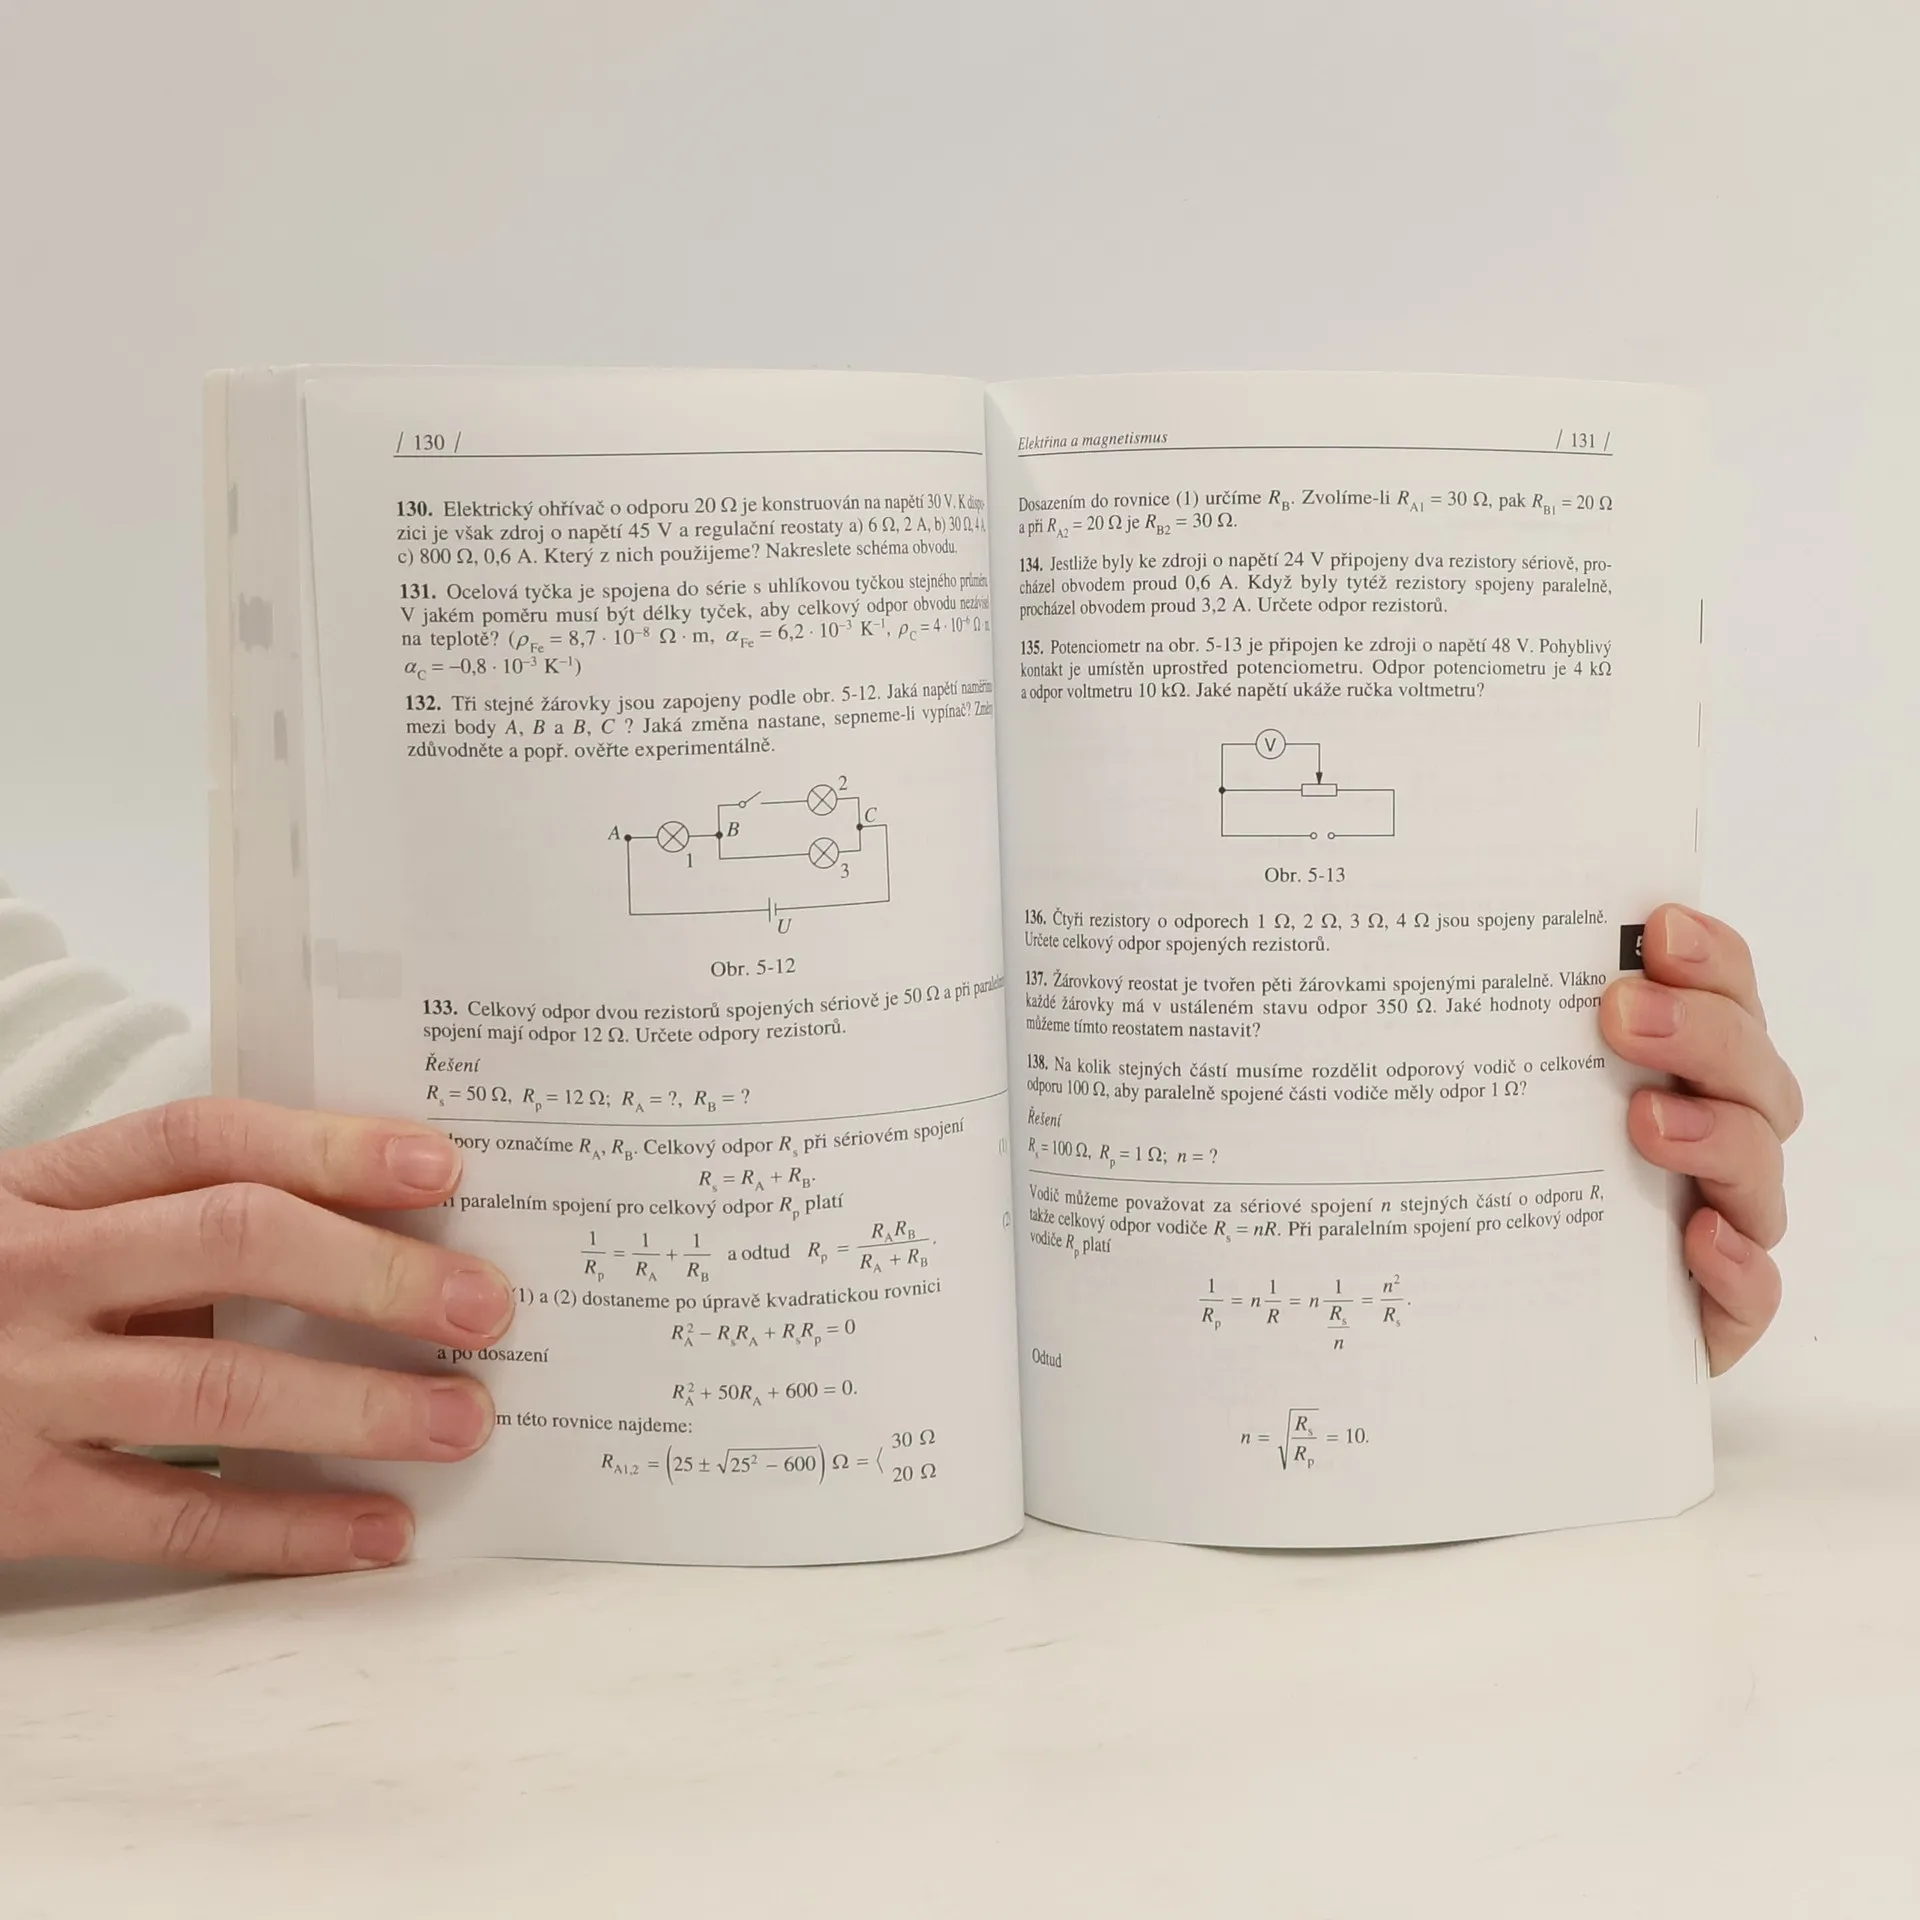 / 130 /
130. Elektrický ohřívač o odporu 20 Ω je konstruován na napětí 30 V. K dispo-
zici je však zdroj o napětí 45 V a regulační reostaty a) 6 Ω, 2 A, b) 30 Ω, 4 A,
c) 800 Ω, 0,6 A. Který z nich použijeme? Nakreslete schéma obvodu.
131. Ocelová tyčka je spojena do série s uhlíkovou tyčkou stejného průměru.
V jakém poměru musí být délky tyček, aby celkový odpor obvodu nezávisel
na teplotě? (ρFe = 8,7 · 10⁻⁸ Ω · m, αFe = 6,2 · 10⁻³ K⁻¹, ρC = 4 · 10⁻⁶ Ω
αC = –0,8 · 10⁻³ K⁻¹)
132. Tři stejné žárovky jsou zapojeny podle obr. 5-12. Jaká napětí naměříme
mezi body A, B a B, C ? Jaká změna nastane, sepneme-li vypínač?
zdůvodněte a popř. ověřte experimentálně.
2
A
B
C
1
3
U
Obr. 5-12
133. Celkový odpor dvou rezistorů spojených sériově je 50 Ω a při
spojení mají odpor 12 Ω. Určete odpory rezistorů.
Řešení
Rs = 50 Ω, Rp = 12 Ω; RA = ?, RB = ?
pory označíme RA, RB. Celkový odpor Rs při sériovém spojení
Rs = RA + RB. (1)
i paralelním spojení pro celkový odpor Rp platí
1/Rp = 1/RA + 1/RB a odtud Rp = RARB/(RA + RB). (2)
(1) a (2) dostaneme po úpravě kvadratickou rovnici
RA² – RsRA + RsRp = 0
a po dosazení
RA² + 50RA + 600 = 0.
m této rovnice najdeme:
RA1,2 = (25 ± √(25² – 600)) Ω = ⟨ 30 Ω
20 Ω
Elektřina a magnetismus / 131 /
Dosazením do rovnice (1) určíme RB. Zvolíme-li RA1 = 30 Ω, pak RB1 = 20 Ω
a při RA2 = 20 Ω je RB2 = 30 Ω.
134. Jestliže byly ke zdroji o napětí 24 V připojeny dva rezistory sériově, pro-
cházel obvodem proud 0,6 A. Když byly tytéž rezistory spojeny paralelně,
procházel obvodem proud 3,2 A. Určete odpor rezistorů.
135. Potenciometr na obr. 5-13 je připojen ke zdroji o napětí 48 V. Pohyblivý
kontakt je umístěn uprostřed potenciometru. Odpor potenciometru je 4 kΩ
a odpor voltmetru 10 kΩ. Jaké napětí ukáže ručka voltmetru?
V
Obr. 5-13
136. Čtyři rezistory o odporech 1 Ω, 2 Ω, 3 Ω, 4 Ω jsou spojeny paralelně.
Určete celkový odpor spojených rezistorů.
5
137. Žárovkový reostat je tvořen pěti žárovkami spojenými paralelně. Vlákno
každé žárovky má v ustáleném stavu odpor 350 Ω. Jaké hodnoty odporu
můžeme tímto reostatem nastavit?
138. Na kolik stejných částí musíme rozdělit odporový vodič o celkovém
odporu 100 Ω, aby paralelně spojené části vodiče měly odpor 1 Ω?
Řešení
Rs = 100 Ω, Rp = 1 Ω; n = ?
Vodič můžeme považovat za sériové spojení n stejných částí o odporu R,
takže celkový odpor vodiče Rs = nR. Při paralelním spojení pro celkový odpor
vodiče Rp platí
1/Rp = n 1/R = n 1/(Rs/n) = n²/Rs.
Odtud
n = √(Rs/Rp) = 10.